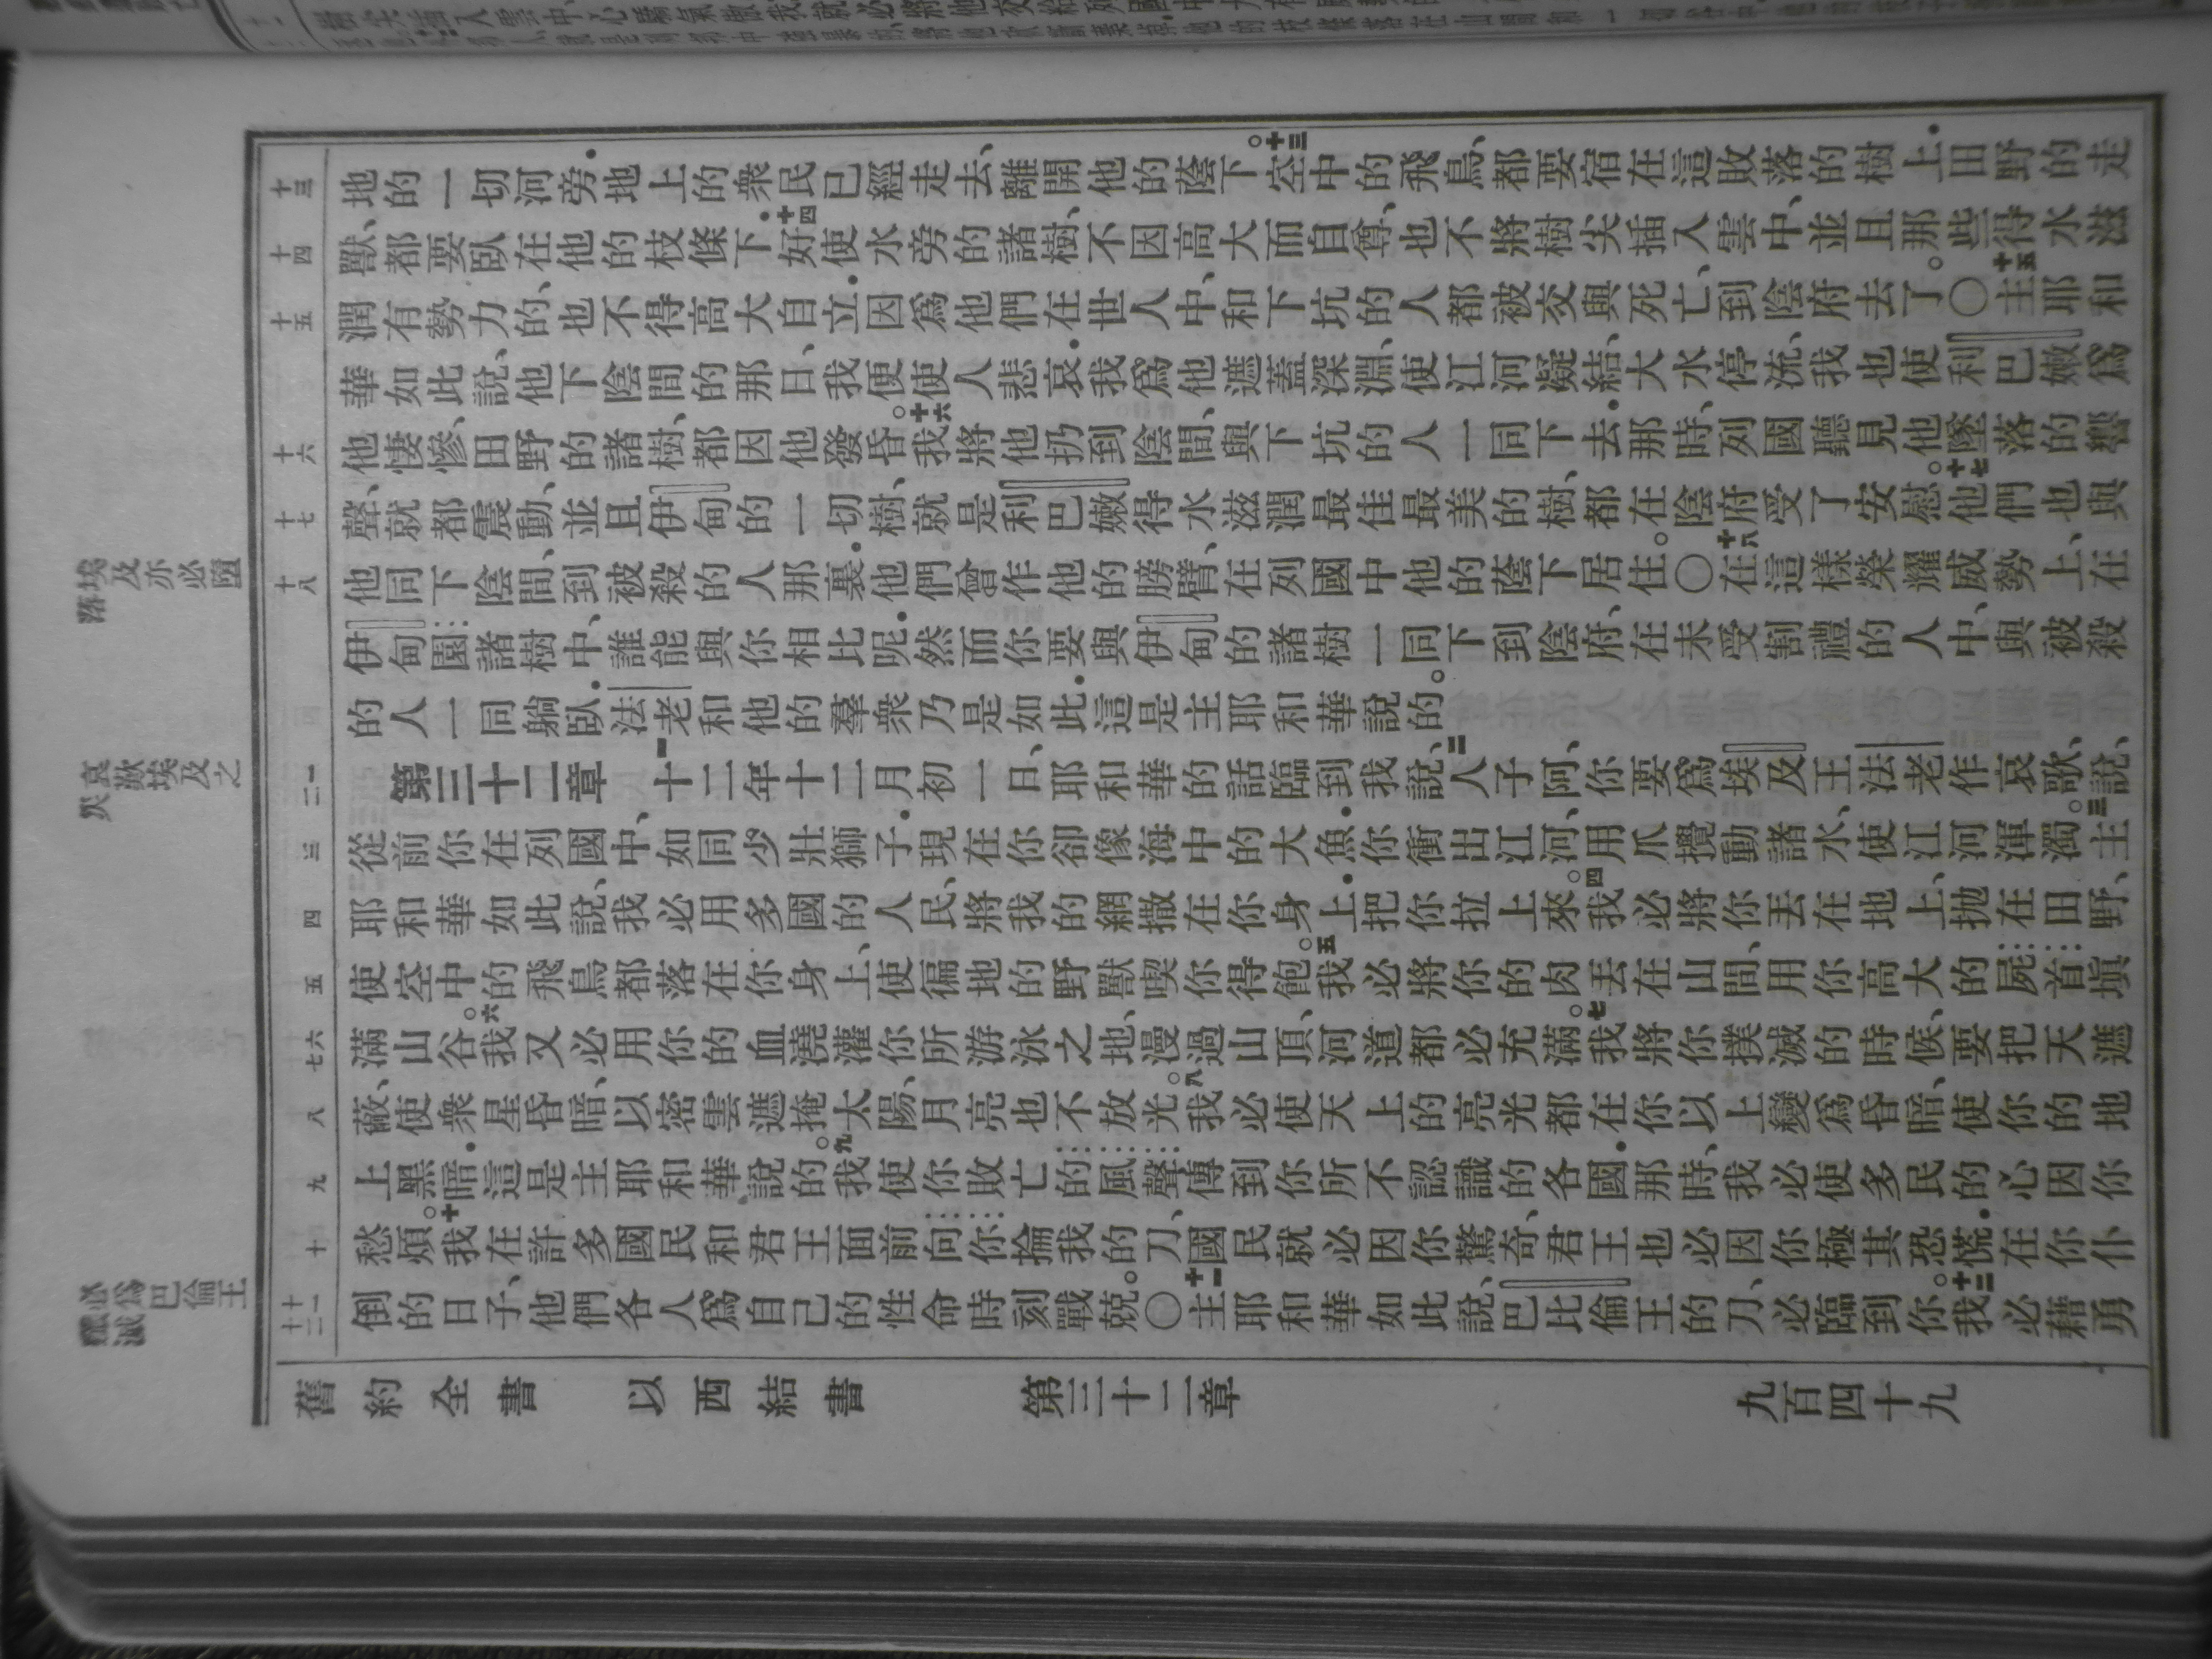 十三
十四
十五
十六
十七
十八
一
二
三
四
五
六
七
八
九
十
十一
十二
埃及亦必墮落
哀歎埃及之災
地的一切河旁．地上的衆民已經走去、離開他的蔭下。十三空中的飛鳥、都要宿在這敗落的樹上．田野的走
獸、都要臥在他的枝條下．十四好使水旁的諸樹、不因高大而自尊、也不將樹尖插入雲中、並且那些得水滋
潤有勢力的、也不得高大自立．因爲他們在世人中、和下坑的人都被交與死亡、到陰府去了。〇十五主耶和
華如此說、他下陰間的那日、我便使人悲哀．我爲他遮蓋深淵、使江河凝結、大水停流、我也使利巴嫩爲
他悽慘、田野的諸樹、都因他發昏。十六我將他扔到陰間、與下坑的人一同下去．那時、列國聽見他墜落的響
聲、就都震動、並且伊甸的一切樹、就是利巴嫩得水滋潤最佳最美的樹、都在陰府受了安慰。十七他們也與
他同下陰間、到被殺的人那裏．他們曾作他的膀臂、在列國中他的蔭下居住。〇十八在這樣榮耀威勢上、在
伊甸園諸樹中、誰能與你相比呢．然而你要與伊甸的諸樹一同下到陰府、在未受割禮的人中、與被殺
的人一同躺臥．法老和他的羣衆乃是如此．這是主耶和華說的。
第三十二章 一十二年十二月初一日、耶和華的話臨到我說、二人子阿、你要爲埃及王法老作哀歌、說、
從前你在列國中、如同少壯獅子．現在你卻像海中的大魚．你衝出江河、用爪攪動諸水、使江河渾濁。三主
耶和華如此說、我必用多國的人民、將我的網撒在你身上．把你拉上來。四我必將你丟在地上、拋在田野、
使空中的飛鳥都落在你身上、使徧地的野獸喫你得飽。五我必將你的肉丟在山間、用你高大的屍首填
滿山谷。六我又必用你的血澆灌你所游泳之地、漫過山頂、河道都必充滿。七我將你撲滅的時候、要把天遮
蔽、使衆星昏暗、以密雲遮掩太陽、月亮也不放光。八我必使天上的亮光都在你以上變爲昏暗、使你的地
上黑暗．這是主耶和華說的。九我使你敗亡的風聲傳到你所不認識的各國．那時、我必使多民的心因你
愁煩。十我在許多國民和君王面前向你掄我的刀、國民就必因你驚奇、君王也必因你極其恐慌．在你仆
倒的日子、他們各人爲自己的性命時刻戰兢。〇十一主耶和華如此說、巴比倫王的刀、必臨到你。十二我必藉勇
舊約全書 以西結書 第三十二章 九百四十九